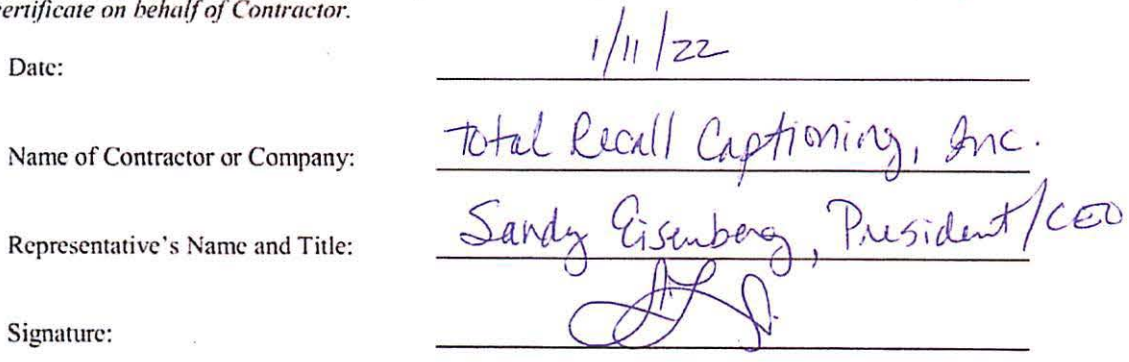 certificate on behalf of Contractor.
Date: 1/11/22
Name of Contractor or Company: Total Recall Captioning, Inc.
Representative's Name and Title: Sandy Eisenberg, President/CEO
Signature: